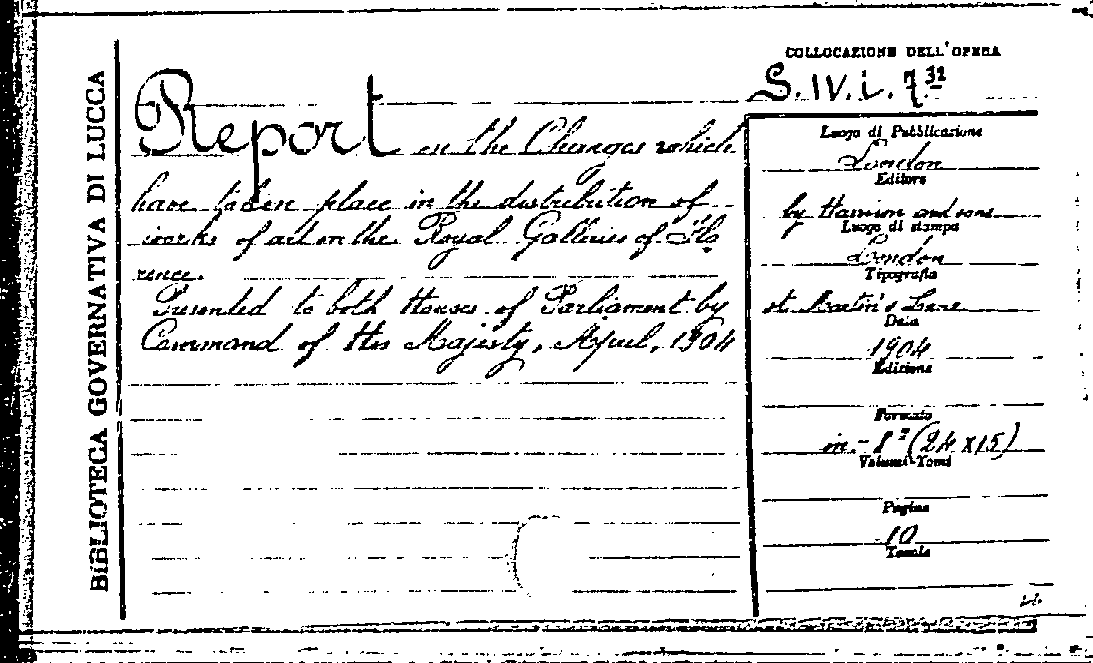 BIBLIOTECA GOVERNATIVA DI LUCCA
COLLOCAZIONE DELL'OPERA
S. IV. i. 7.32
Report on the Changes which
have taken place in the distribution of
works of art in the Royal Galleries of Flo
rence.
Presented to both Houses of Parliament by
Command of His Majesty, April, 1904
Luogo di Pubblicazione
London
Editore
by Harrison and sons
Luogo di stampa
London
Tipografia
st. Martin's Lane
Data
1904
Edizione
Formato
in-8° (24 x 15)
Volumi-Tomi
Pagine
10
Tavole